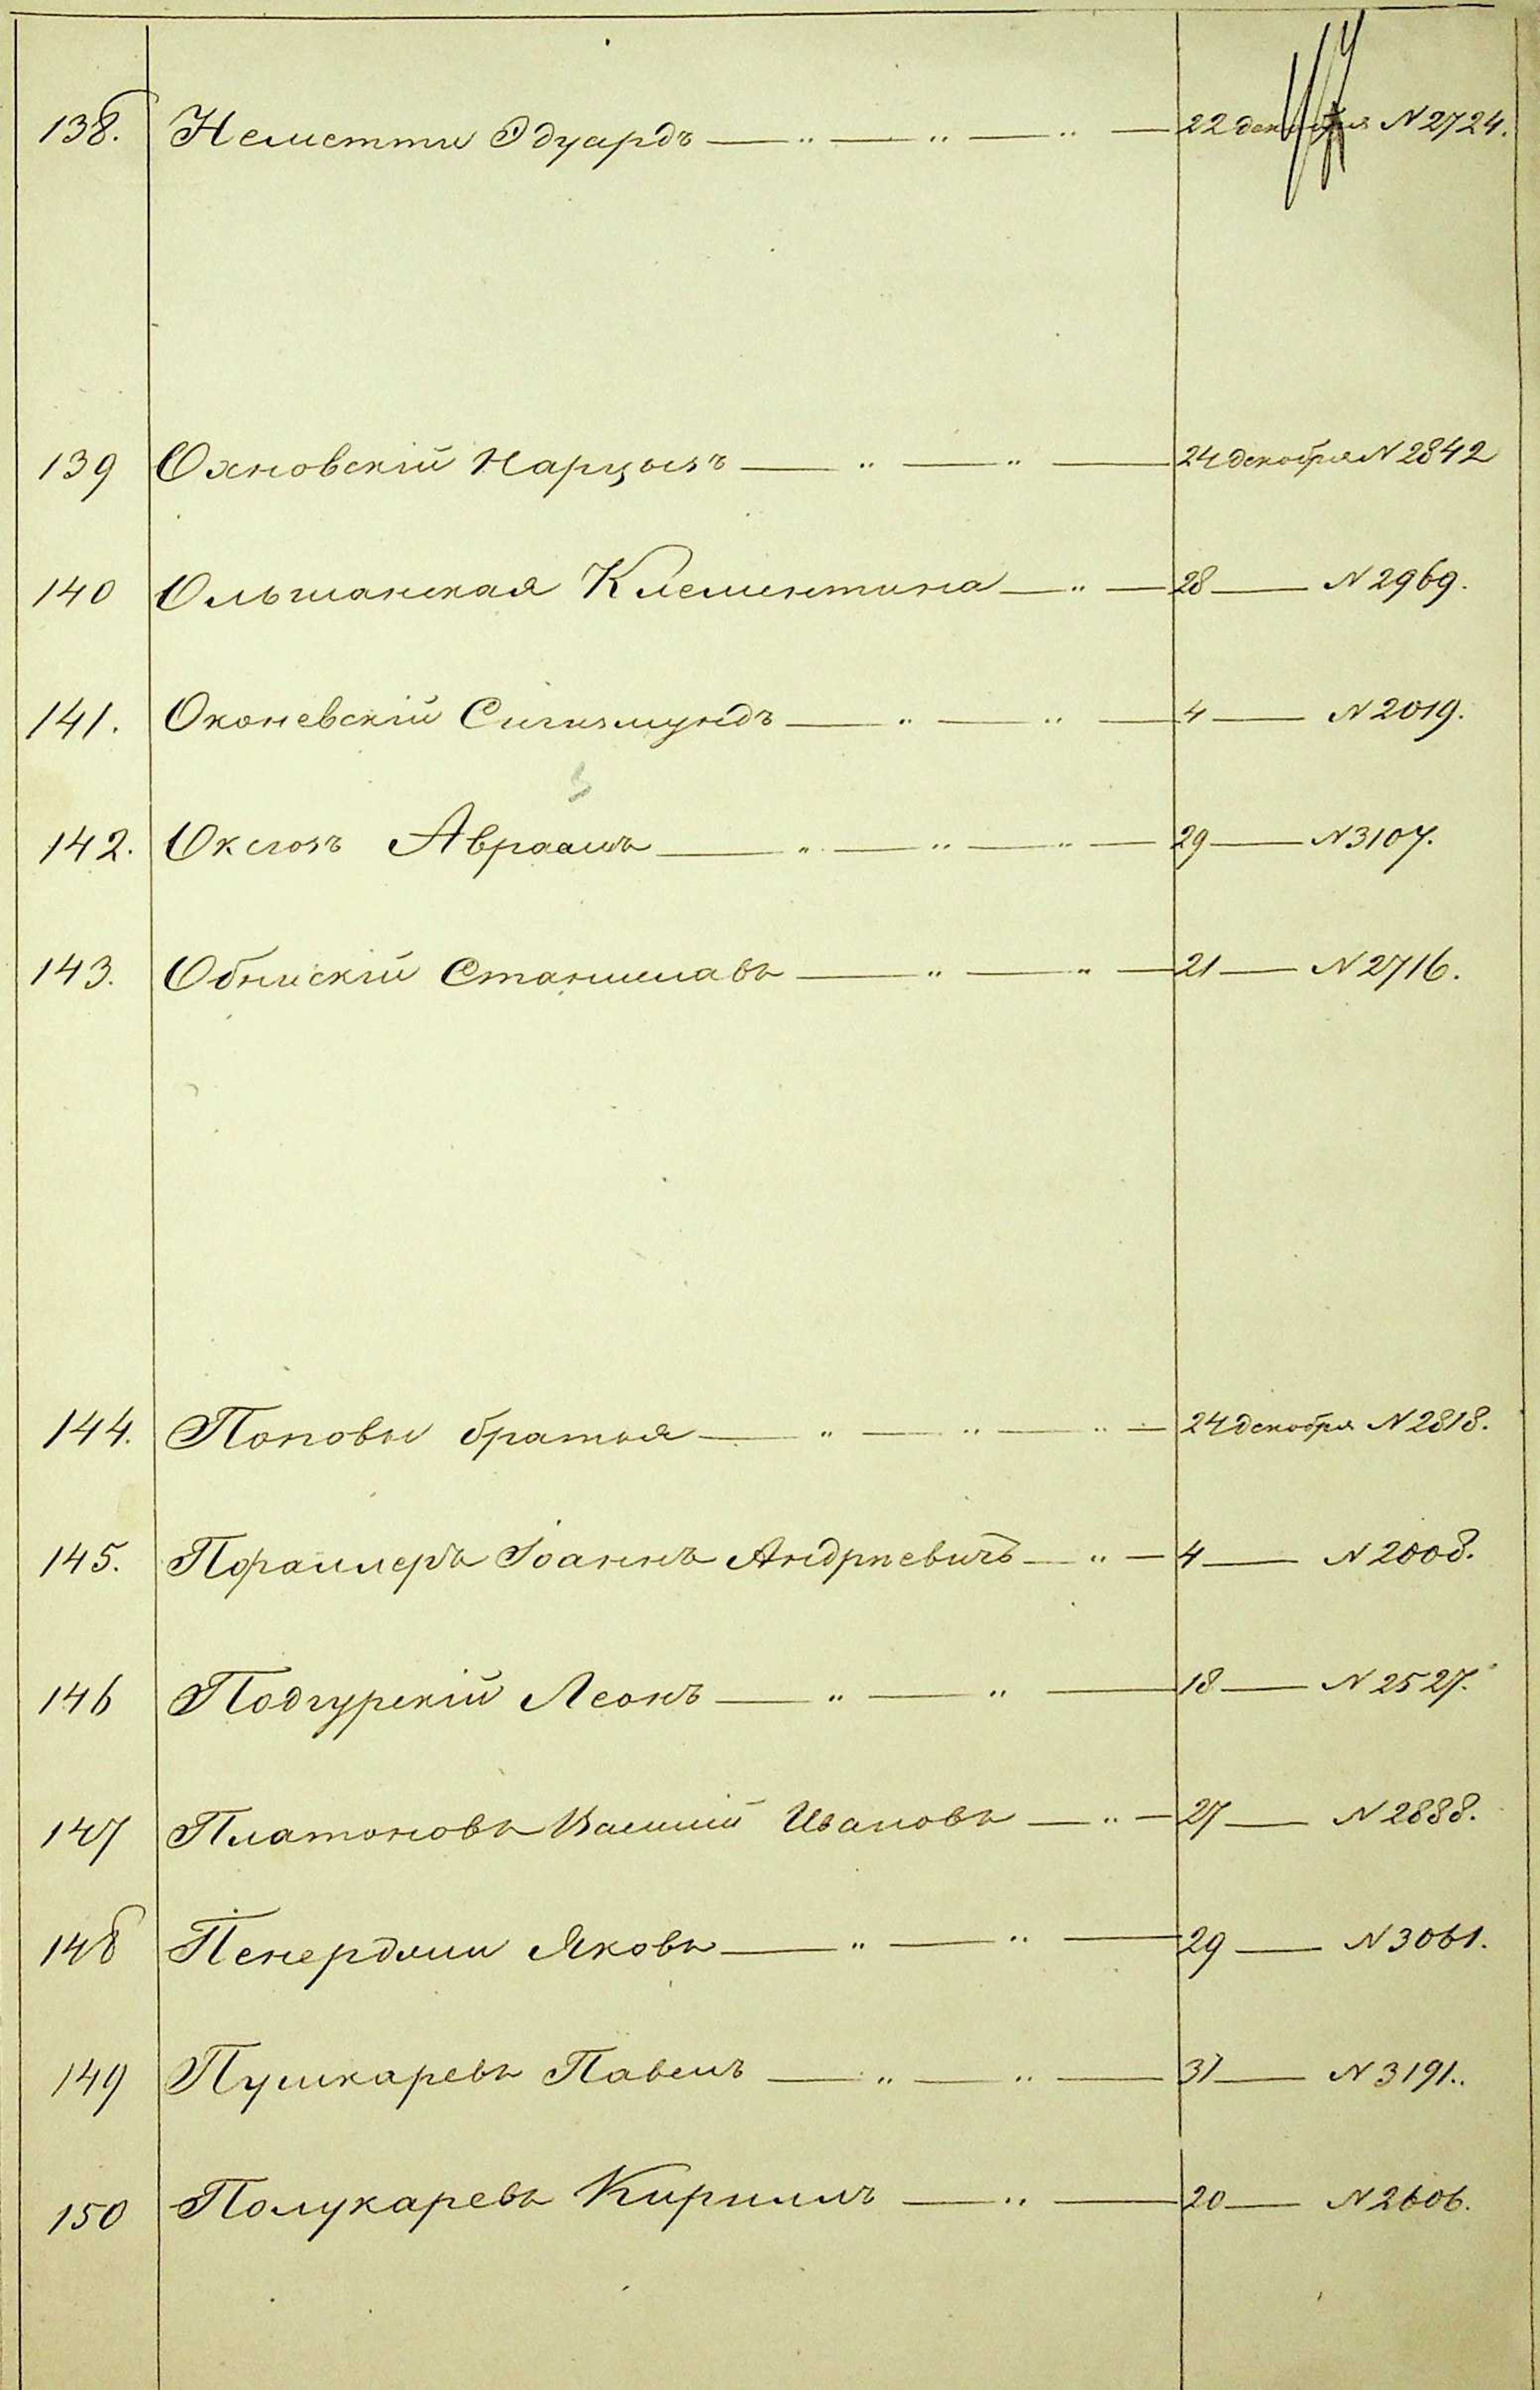 138. Неметти Эдуардъ — „ — „ — „ — 22 декабря N 2724.
139 Охновскій Нарцызъ — „ — „ — 24 декабря N 2842
140 Ольшанская Клементина — „ — 28 — N 2969.
141. Оконевскій Сигизмундъ — „ — „ — 4 — N 2019.
142. Авраамъ — „ — „ — „ — 29 — N 3107.
143. Обнискій Станиславъ — „ — „ — 21 — N 2716.
144. Поповы братья — „ — „ — „ — 24 декабря N 2818.
145. Іоаннъ Андреевичъ — „ — 4 — N 2008.
146 Подгурскій Леонъ — „ — „ — 18 — N 2527.
147 Платоновъ Василій Ивановъ — „ — 27 — N 2888.
148 Яковъ — „ — „ — 29 — N 3061.
149 Пушкаревъ Павелъ — „ — „ — 31 — N 3191.
150 Полукаревъ Кириллъ — „ — 20 — N 2606.